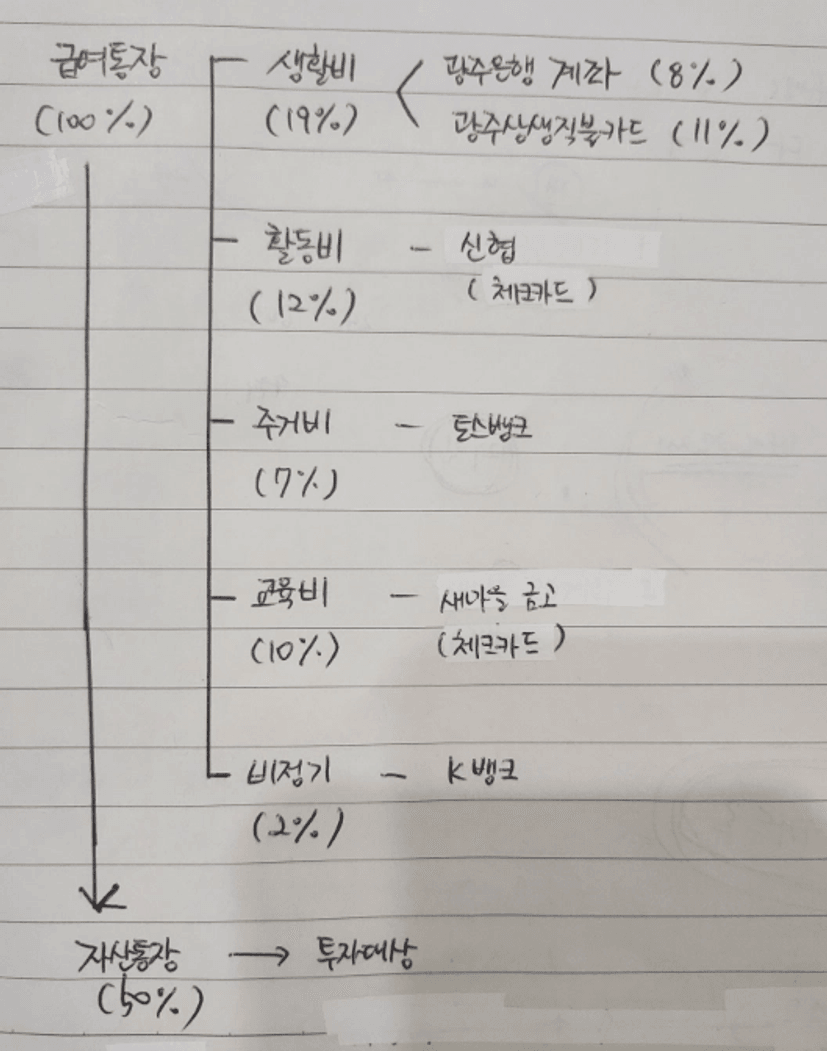 급여통장 생활비 광주은행 계좌 (8%)
(100%) (19%) 광주상생직불카드 (11%)
활동비 - 신협
(12%) (체크카드)
주거비 - 토스뱅크
(7%)
교육비 - 새마을 금고
(10%) (체크카드)
비정기 - K뱅크
(2%)
자산통장 → 투자대상
(50%)